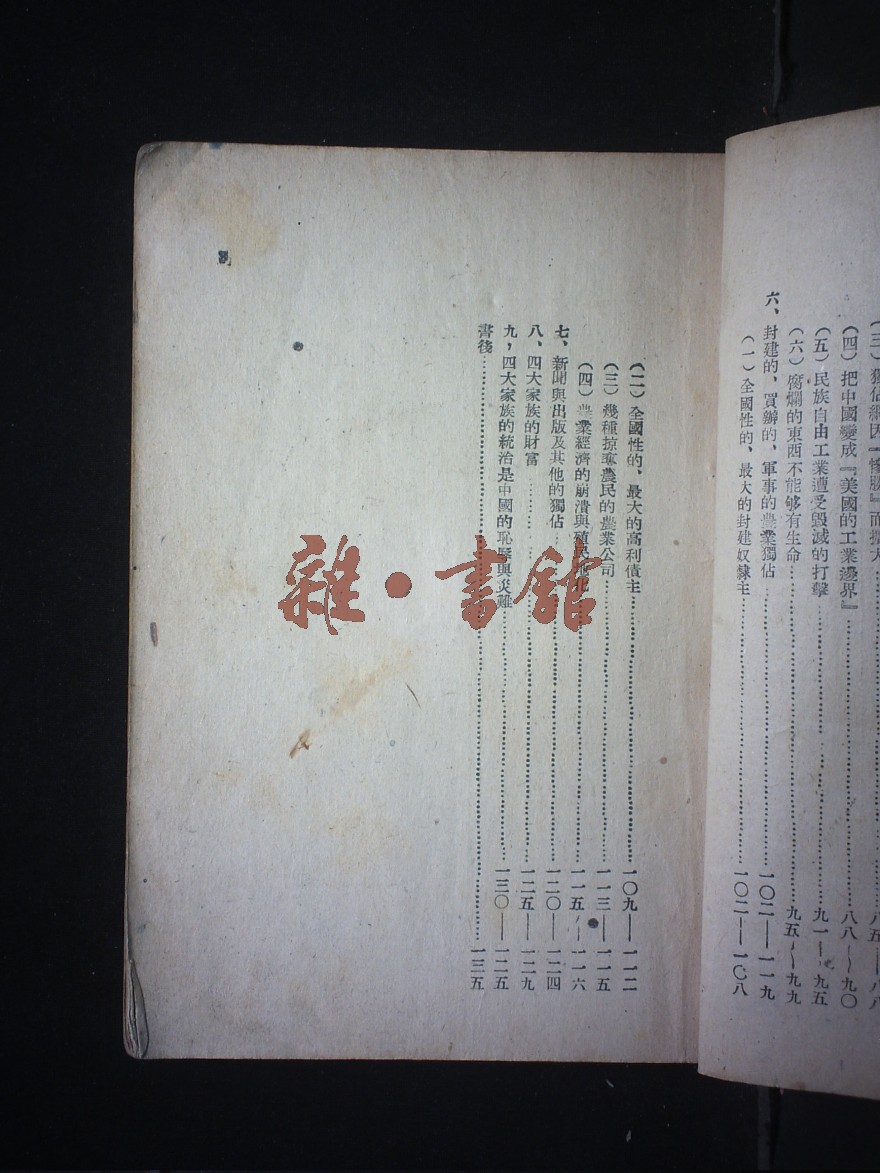 （三）獨佔網因『慘勝』而擴大……八五—八八
（四）把中國變成『美國的工業邊界』……八八—九〇
（五）民族自由工業遭受毀滅的打擊……九一—九五
（六）腐爛的東西不能够有生命……九五—九九
六、封建的、買辦的、軍事的農業獨佔……一〇二—一一九
（一）全國性的、最大的封建奴隸主……一〇二—一〇八
（二）全國性的、最大的高利債主……一〇九—一一二
（三）幾種掠奪農民的農業公司……一一三—一一五
（四）農業經濟的崩潰與殖民地化……一一五—一一六
七、新聞與出版及其他的獨佔……一二〇—一二四
八、四大家族的財富……一二五—一二九
九，四大家族的統治是中國的恥辱與災難……一三〇—一二五
書後……一三五
雜·書館